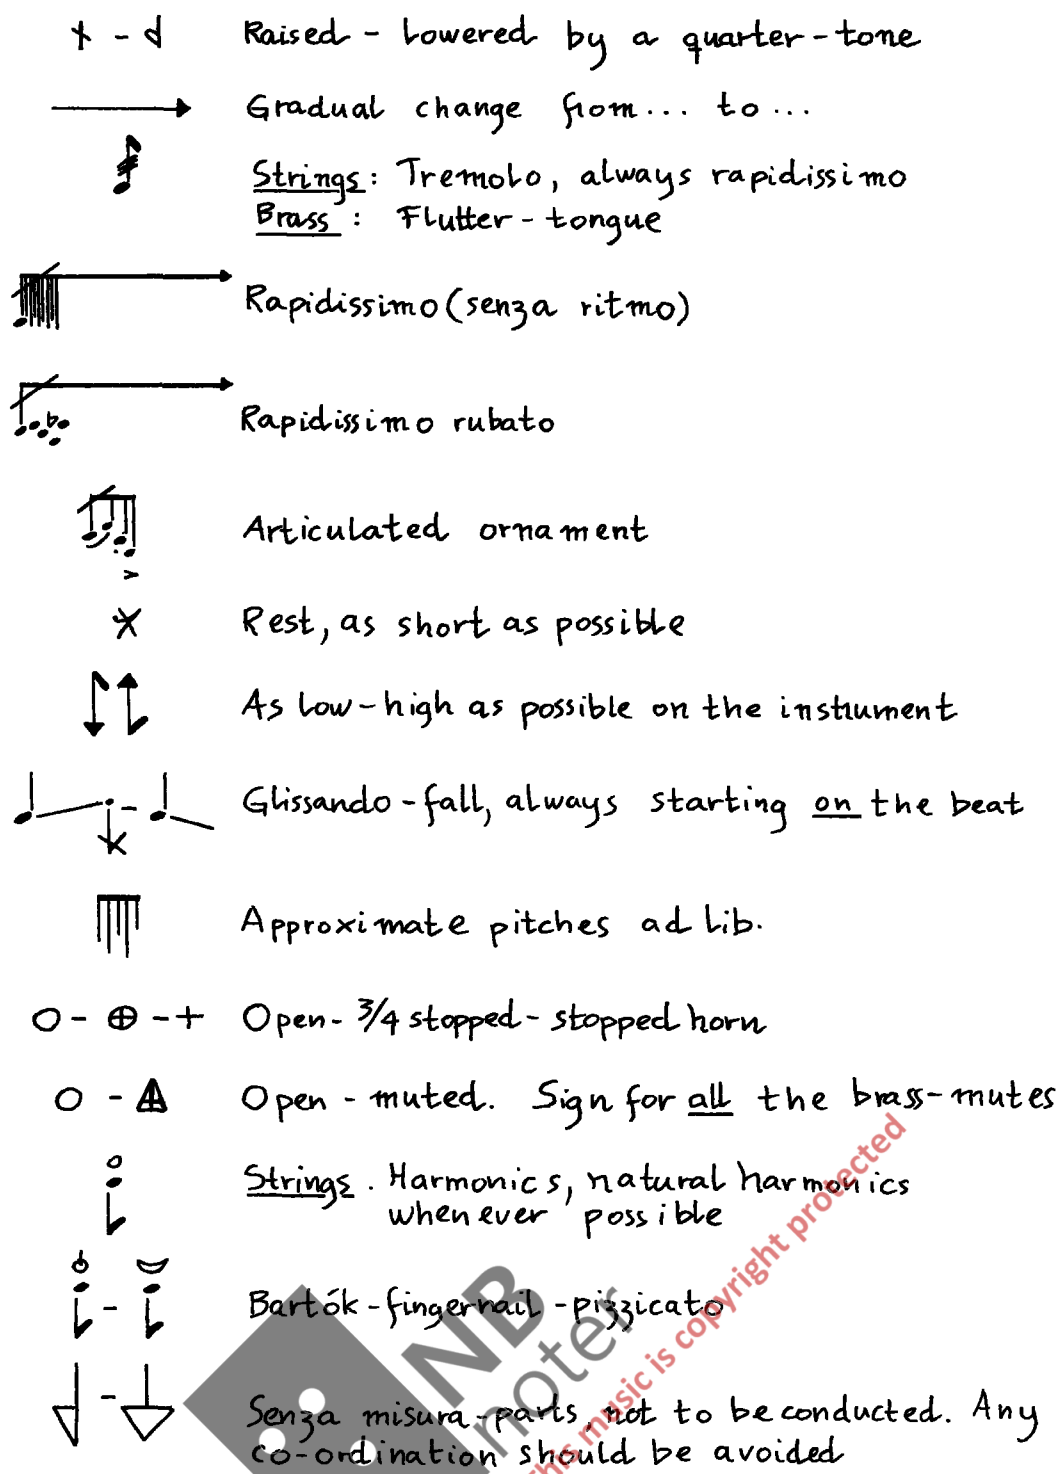 Raised - Lowered by a quarter-tone
Gradual change from... to...
Strings: Tremolo, always rapidissimo
Brass: Flutter-tongue
Rapidissimo (senza ritmo)
Rapidissimo rubato
Articulated ornament
Rest, as short as possible
As low-high as possible on the instrument
Glissando-fall, always starting on the beat
Approximate pitches ad lib.
Open - 3/4 stopped - stopped horn
Open - muted. Sign for all the brass-mutes
Strings. Harmonics, natural harmonics
whenever possible
Bartók-fingernail-pizzicato
Senza misura-parts, not to be conducted. Any
co-ordination should be avoided
NB
noter
this music is copyright protected